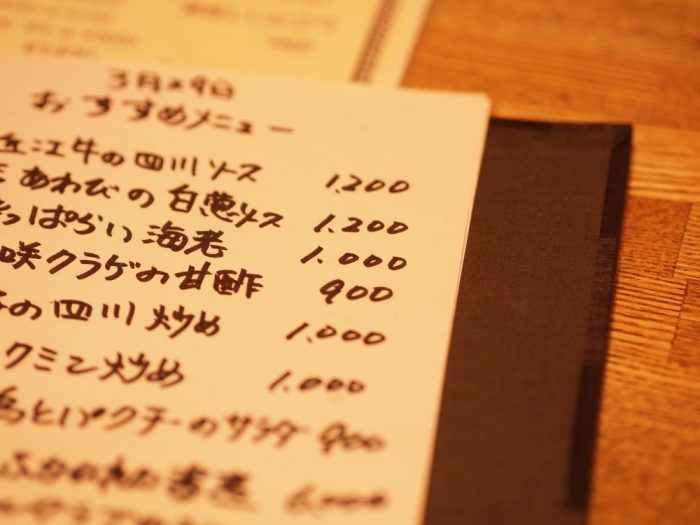 3月29日
おすすめメニュー
近江牛の四川ソース 1.200
あわびの白葱ソース 1.200
っぱらい海老 1.000
咲クラゲの甘酢 900
の四川炒め 1.000
クミン炒め 1.000
とパクチーのサラダ 900
6.000